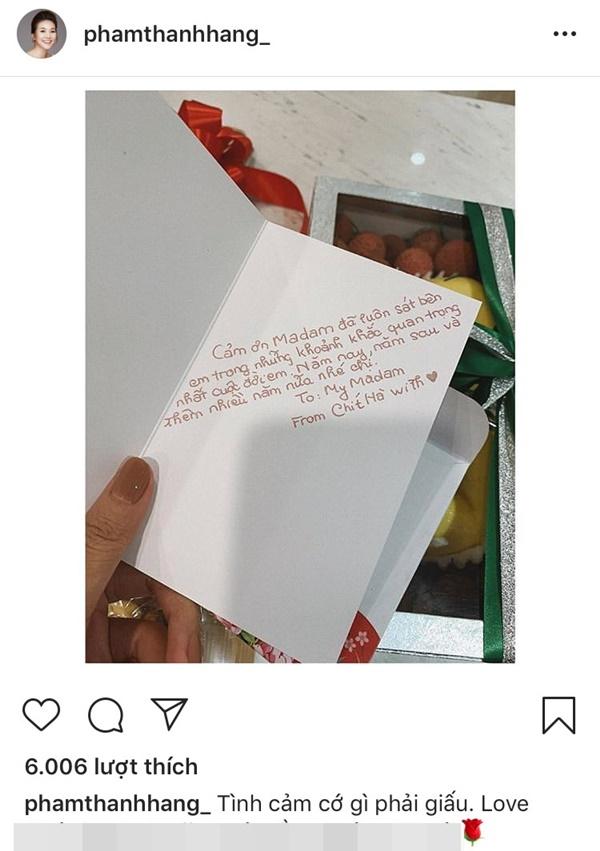 phamthanhhang_
Cảm ơn Madam đã luôn sát bên
em trong những khoảnh khắc quan trọng
nhất cuộc đời em. Năm nay, năm sau và
thêm nhiều năm nữa nhé chị.
To: My Madam
From Chít Hà with ♥
6.006 lượt thích
phamthanhhang_ Tình cảm cớ gì phải giấu. Love
🌹